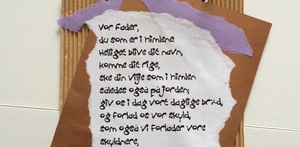 Vor Fader,
du som er i himlene
Helliget blive dit navn,
komme dit rige,
ske din vilje som i himlen
således også på jorden;
giv os i dag vort daglige brød,
og forlad os vor skyld,
som også vi forlader vore
skyldnere,